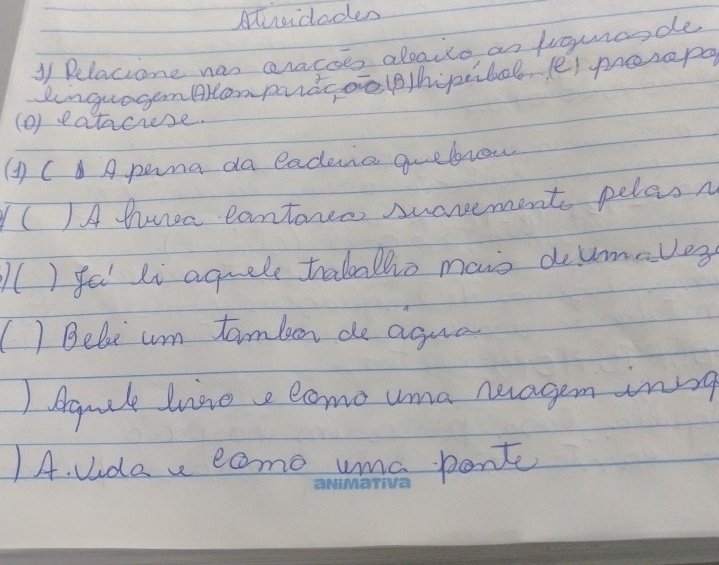 Atividades
1) Relacione nas orações abaixo as figuras de
linguagem (A) Comparação (B) hipérbole (C) prosopo
(D) catacrese.
(1) ( ) A perna da cadeira quebrou
( ) A cantarea suavemente pelas
)( ) Já li aquele trabalho mais de uma veze
( ) Bebi um tambor de água
) Aquele livro e como uma viagem inesq
) A vida e como uma ponte
ANIMATIVA